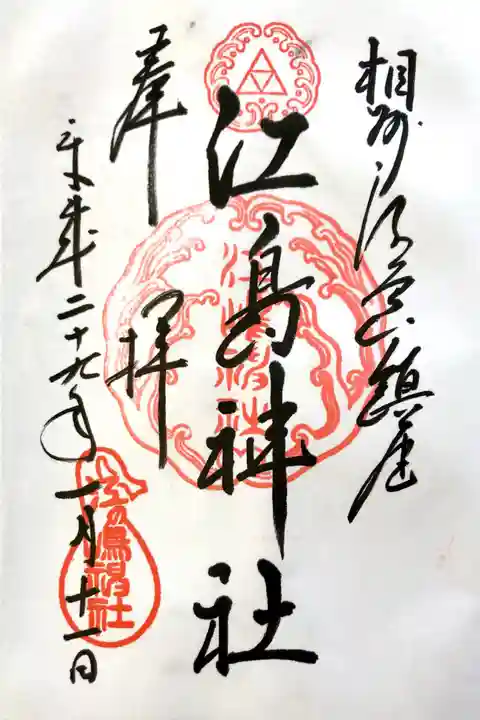 相州江ノ島鎮座
江島神社
奉拝
平成二十九年一月十一日
江島神社
江の島神社